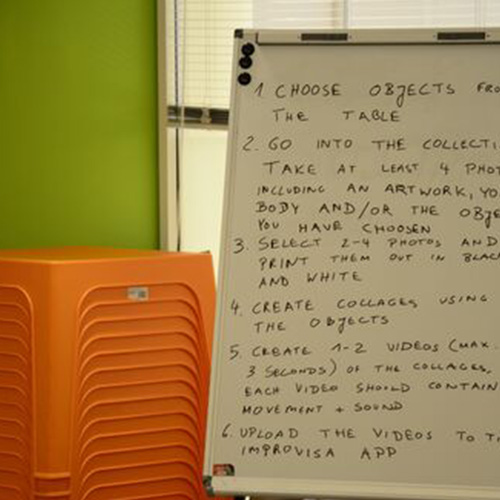 1. CHOOSE OBJECTS FRO
THE TABLE
2. GO INTO THE COLLECTI
TAKE AT LEAST 4 PHOT
INCLUDING AN ARTWORK, YO
BODY AND/OR THE OBJE
YOU HAVE CHOOSEN
3. SELECT 2-4 PHOTOS AND
PRINT THEM OUT IN BLAC
AND WHITE
4. CREATE COLLAGES USING
THE OBJECTS
5. CREATE 1-2 VIDEOS (MAX.
3 SECONDS) OF THE COLLAGES,
EACH VIDEO SHOULD CONTAIN
MOVEMENT + SOUND
6. UPLOAD THE VIDEOS TO T
IMPROVISA APP